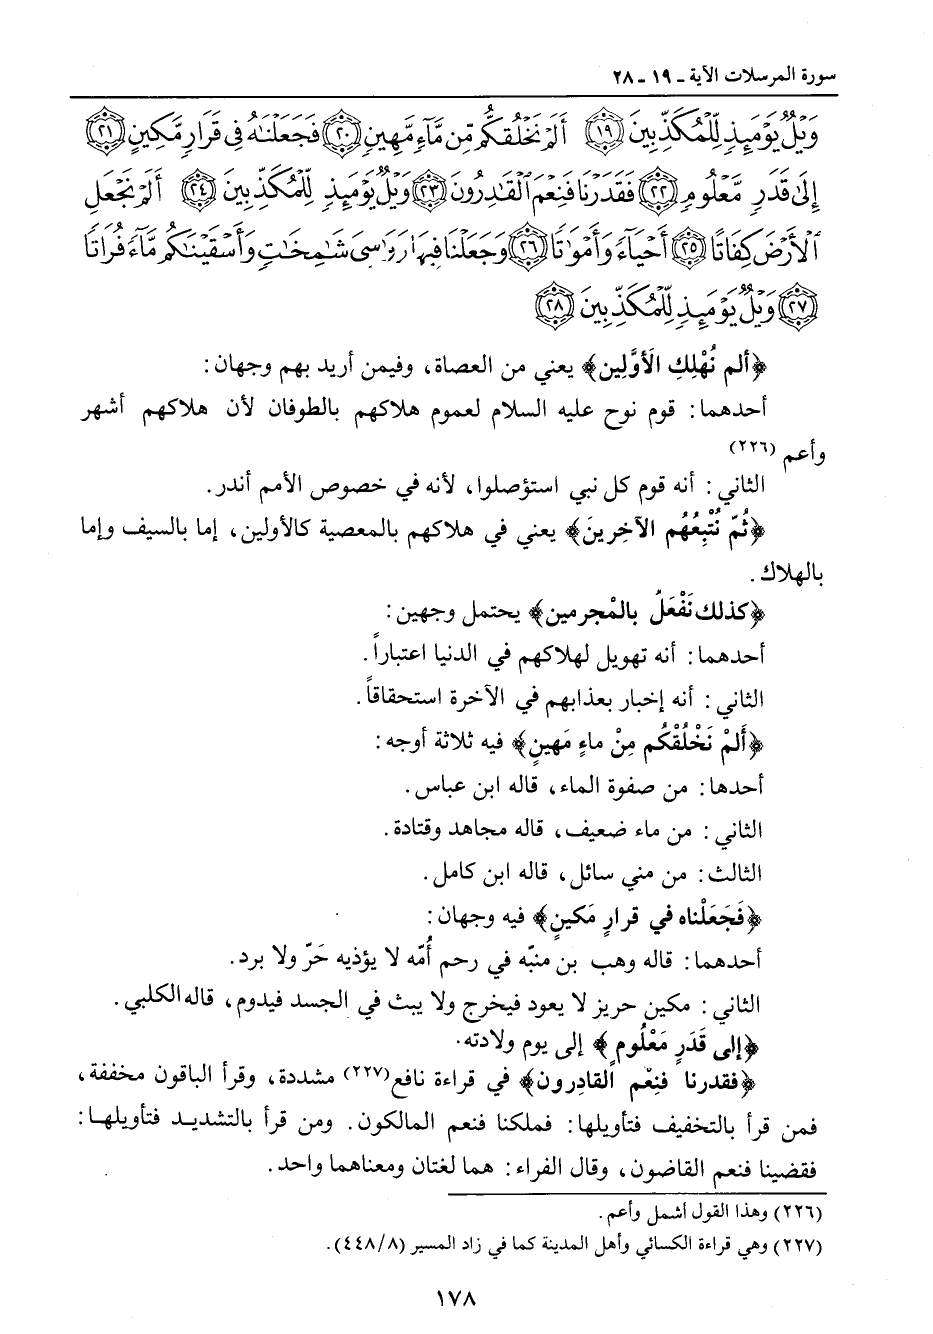 سورة المرسلات الآية ـ ١٩ ـ ٢٨
وَيْلٌ يَوْمَئِذٍ لِّلْمُكَذِّبِينَ ﴿١٩﴾ أَلَمْ نَخْلُقكُّم مِّن مَّآءٍ مَّهِينٍ ﴿٢٠﴾ فَجَعَلْنَٰهُ فِى قَرَارٍ مَّكِينٍ ﴿٢١﴾
إِلَىٰ قَدَرٍ مَّعْلُومٍ ﴿٢٢﴾ فَقَدَرْنَا فَنِعْمَ ٱلْقَٰدِرُونَ ﴿٢٣﴾ وَيْلٌ يَوْمَئِذٍ لِّلْمُكَذِّبِينَ ﴿٢٤﴾ أَلَمْ نَجْعَلِ
ٱلْأَرْضَ كِفَاتًا ﴿٢٥﴾ أَحْيَآءً وَأَمْوَٰتًا ﴿٢٦﴾ وَجَعَلْنَا فِيهَا رَوَٰسِىَ شَٰمِخَٰتٍ وَأَسْقَيْنَٰكُم مَّآءً فُرَاتًا
﴿٢٧﴾ وَيْلٌ يَوْمَئِذٍ لِّلْمُكَذِّبِينَ ﴿٢٨﴾
﴿ألم نُهْلِكِ الأوَّلِين﴾ يعني من العصاة، وفيمن أريد بهم وجهان:
أحدهما: قوم نوح عليه السلام لعموم هلاكهم بالطوفان لأن هلاكهم أشهر
وأعم (٢٢٦)
الثاني: أنه قوم كل نبي استؤصلوا، لأنه في خصوص الأمم أندر.
﴿ثُمّ نُتْبِعُهُم الآخِرينَ﴾ يعني في هلاكهم بالمعصية كالأولين، إما بالسيف وإما
بالهلاك.
﴿كذلك نَفْعَلُ بالمْجرمين﴾ يحتمل وجهين:
أحدهما: أنه تهويل لهلاكهم في الدنيا اعتباراً.
الثاني: أنه إخبار بعذابهم في الآخرة استحقاقاً.
﴿أَلمْ نَخْلُقْكُم مِنْ ماءٍ مَهينٍ﴾ فيه ثلاثة أوجه:
أحدها: من صفوة الماء، قاله ابن عباس.
الثاني: من ماء ضعيف، قاله مجاهد وقتادة.
الثالث: من مني سائل، قاله ابن كامل.
﴿فَجَعَلْناه في قرارٍ مَكينٍ﴾ فيه وجهان:
أحدهما: قاله وهب بن منبّه في رحم أُمّه لا يؤذيه حَرّ ولا برد.
الثاني: مكين حريز لا يعود فيخرج ولا يبث في الجسد فيدوم، قاله الكلبي.
﴿إلى قَدَرٍ مَعْلُومٍ﴾ إلى يوم ولادته.
﴿فقدرنا فنِعْم القادِرون﴾ في قراءة نافع(٢٢٧) مشددة، وقرأ الباقون مخففة،
فمن قرأ بالتخفيف فتأويلها: فملكنا فنعم المالكون. ومن قرأ بالتشديد فتأويلها:
فقضينا فنعم القاضون، وقال الفراء: هما لغتان ومعناهما واحد.
(٢٢٦) وهذا القول أشمل وأعم.
(٢٢٧) وهي قراءة الكسائي وأهل المدينة كما في زاد المسير (٤٤٨/٨).
١٧٨